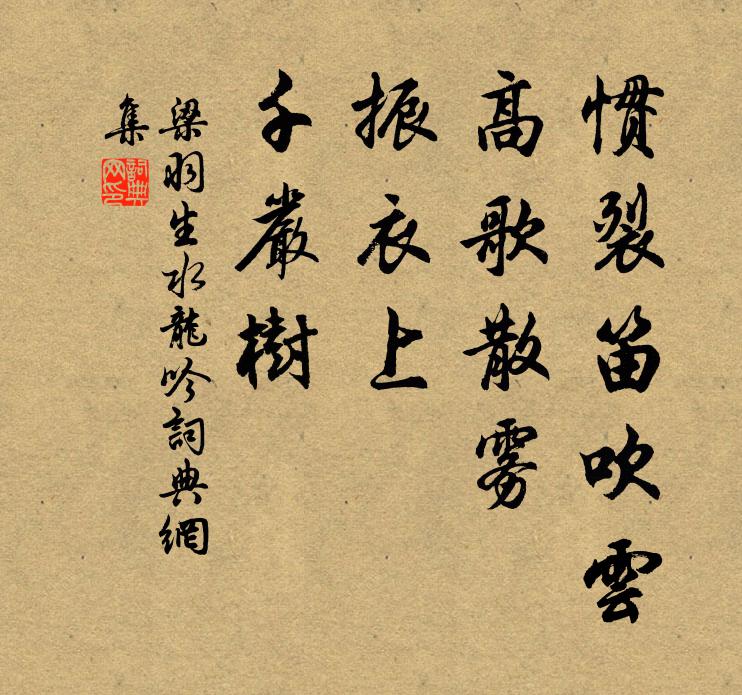 慣裂笛吹雲
高歌散雾
振衣上
千嚴樹
梁羽生水龍吟詞典網
集
詞典网印